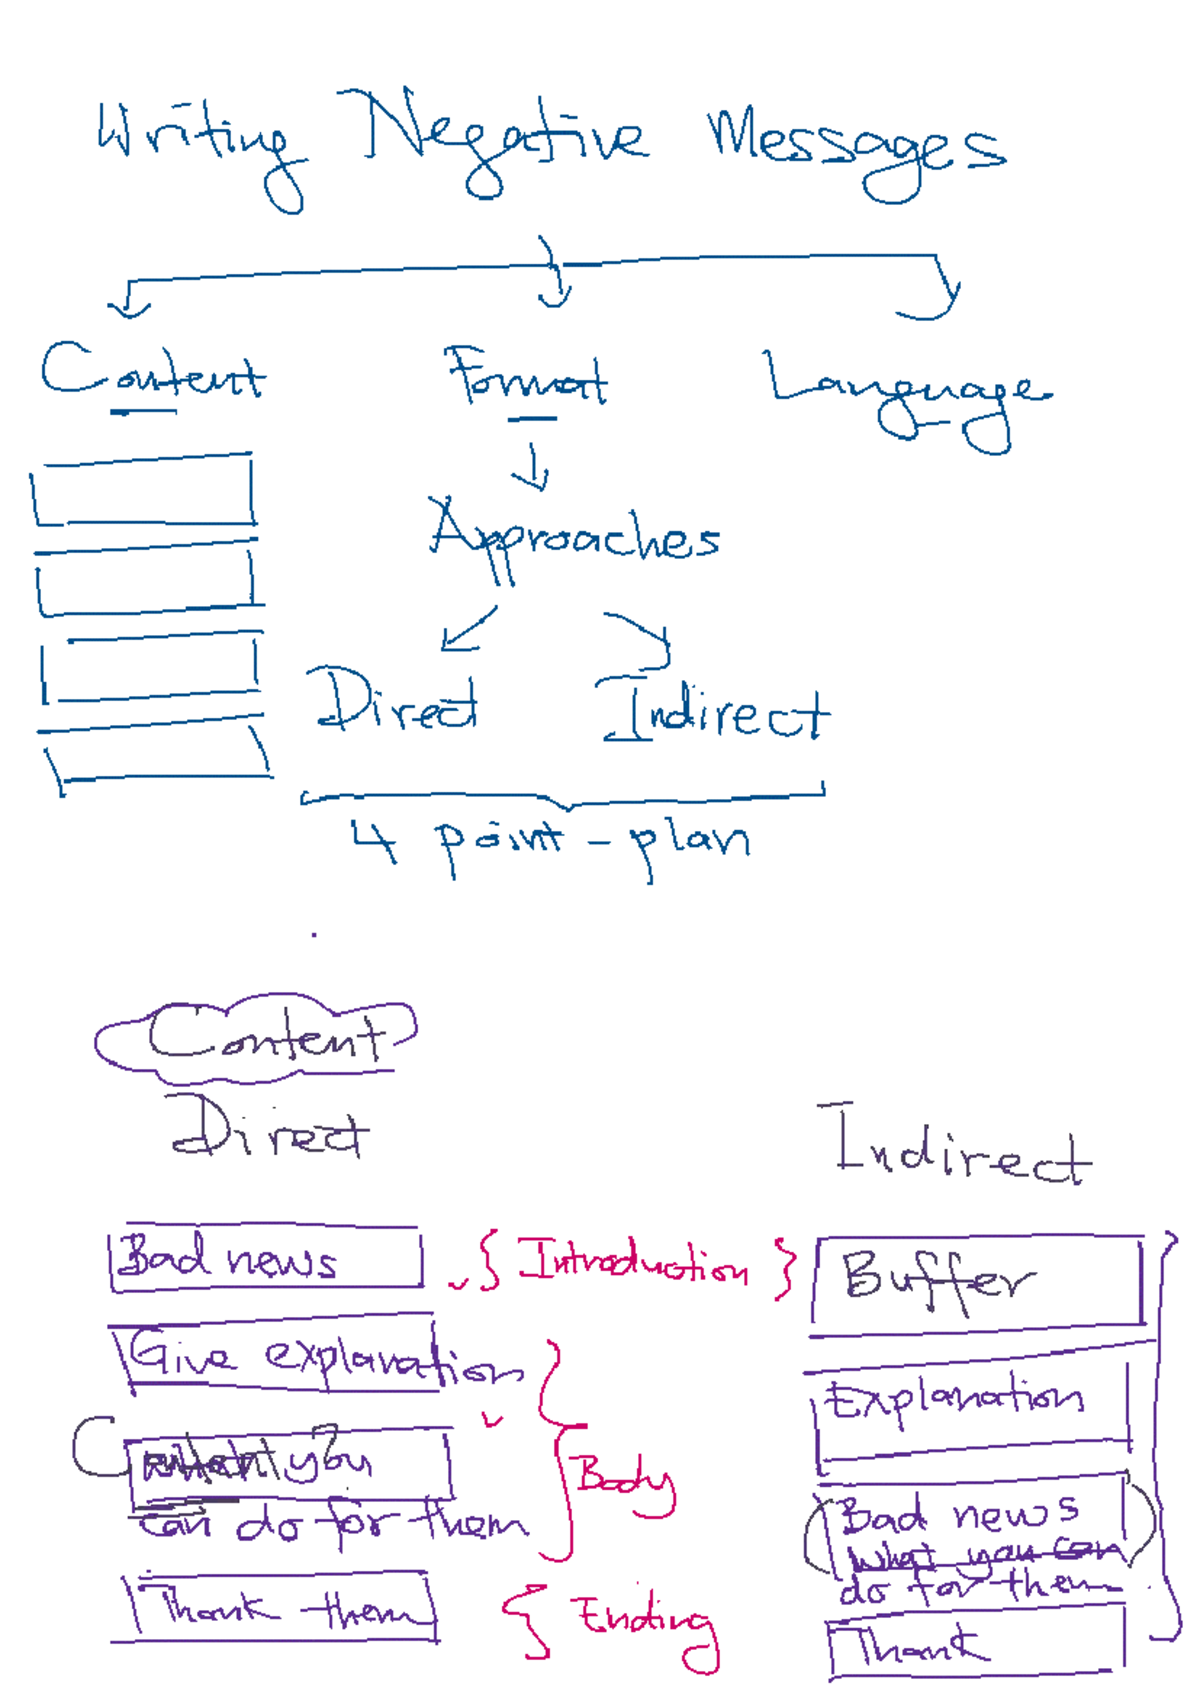 Writing Negative Messages
Content Format Language
Approaches
Direct Indirect
4 point-plan
Content
Direct
Indirect
Bad news
Introduction
Buffer
Give explanation
Explanation
what you
can do for them
Body
Bad news
what you can
do for them
Thank them
Ending
Thank